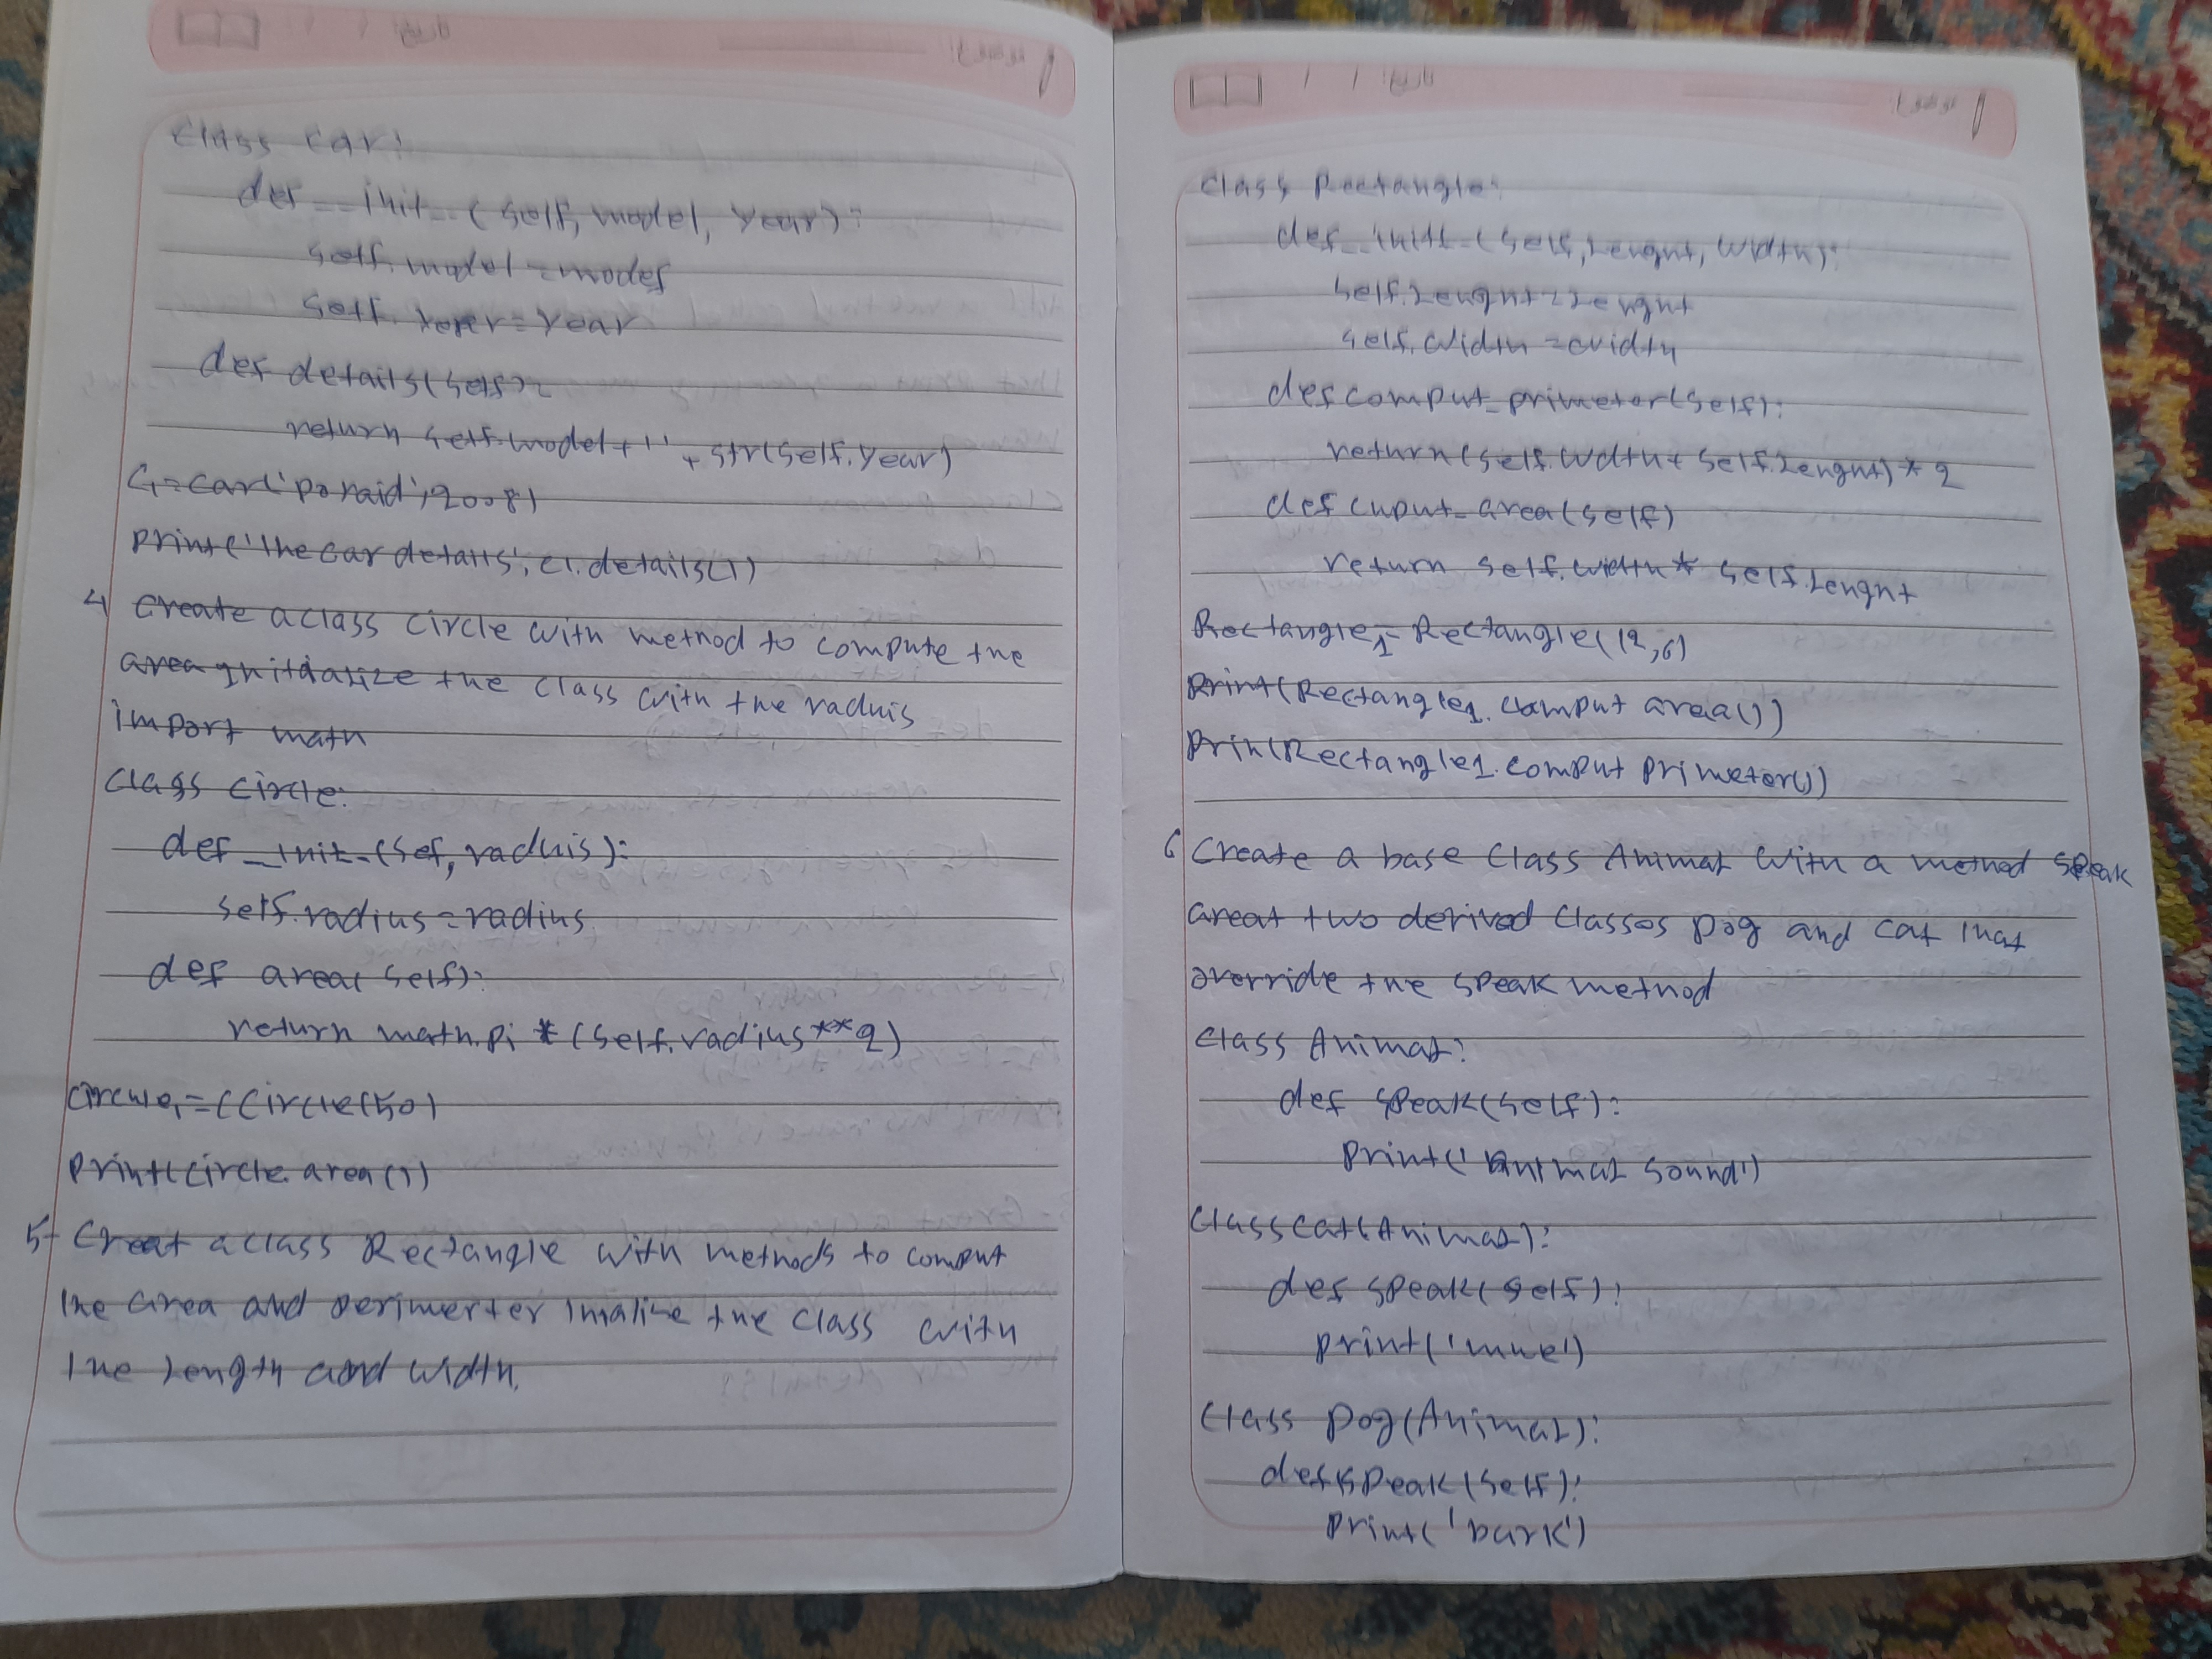 class car:
def __init__(self, model, year):
self.model = model
self.year = year
def details(self):
return self.model + ' ' + str(self.year)
C1 = car('poraid', 2008)
print('the car details', c1.details())
4 create a class circle with method to compute the
area initialize the class with the raduis
import math
class circle:
def __init__(self, raduis):
self.radius = radius
def area(self):
return math.pi * (self.radius**2)
circle1 = (Circle(50)
print(circle area())
5- Creat a class Rectangle with methods to comput
the area and perimerter inalize the class with
the length and width
class Rectangle:
def __init__(self, lenght, width):
self.lenght = lenght
self.width = width
def comput_primetor(self):
return (self.width + self.lenght) * 2
def cmput_area(self)
return self.width * self.lenght
Rectangle1 = Rectangle(12,6)
print(Rectangle1.comput area())
prin(Rectangle1.comput primetor())
6 Create a base class Animal with a method speak
creat two derived classes Dog and cat that
override the speak method
class Animal:
def speak(self):
print('animal sound')
class cat(Animal):
def speak(self):
print('mwe')
class Dog(Animal):
def speak(self):
print('bark')